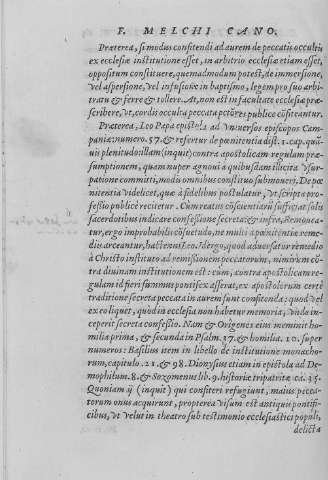 F. MELCHI CANO.
Præterea, si modus confitendi ad aurem de peccatis occultis
ex ecclesiæ institutione esset, in arbitrio ecclesiæ etiam esset,
oppositum constituere, quemadmodum potest, de immersione,
vel aspersione, vel infusione in baptismo, legem pro suo arbi-
tratu & ferre & tollere. At, non est in facultate ecclesiæ præ-
scribere, vt, cordis occulta peccata pectoris publice cōfiteantur.
Præterea, Leo Papa epistola ad vniuersos episcopos Cam-
paniæ numero. 57. & refertur de pœnitentia dist. 1. cap. quā-
uis plenitudo: illam (inquit) contra apostolicam regulam præ-
sumptionem, quam nuper agnoui à quibusdam illicita vsur-
patione committi, modis omnibus constituo submoueri. De pœ-
nitentia videlicet, quæ à fidelibus postulatur, vt, scripta pro-
fessio publice recitetur. Cum reatus cōscientiarū sufficiat solis
sacerdotibus indicare confessione secreta: & infra, Remouea-
tur, ergo improbabilis cōsuetudo, ne multi à pœnitentiæ reme-
dijs arceantur, hactenus Leo. Id ergo, quod aduersatur remedio
à Christo instituto ad remissionem peccatorum, nimirum cō-
tra diuinam institutionem est: cum, contra apostolicam re-
gulam id fieri summus pontifex asserat, ex apostolorum certe
traditione secreta peccata in aurem sunt confitenda: quod vel
ex eo liquet, quod in ecclesia non habetur memoria, vnde in-
ceperit secreta confessio. Nam & Origenes eius meminit ho-
milia prima, & secunda in Psalm. 37. & homilia. 10. super
numeros: Basilius item in libello de institutione monacho-
rum, capitulo. 21. & 98. Dionysius etiam in epistola ad De-
mophilum. 8. & Sozomenus lib. 9. historiæ tripartitæ ca. 35.
Quoniam ij (inquit) qui confiteri refugiunt, maius pecca-
torum onus acquirunt, propterea visum est antiquis pontifi-
cibus, vt velut in theatro sub testimonio ecclesiastici populi,
delicta